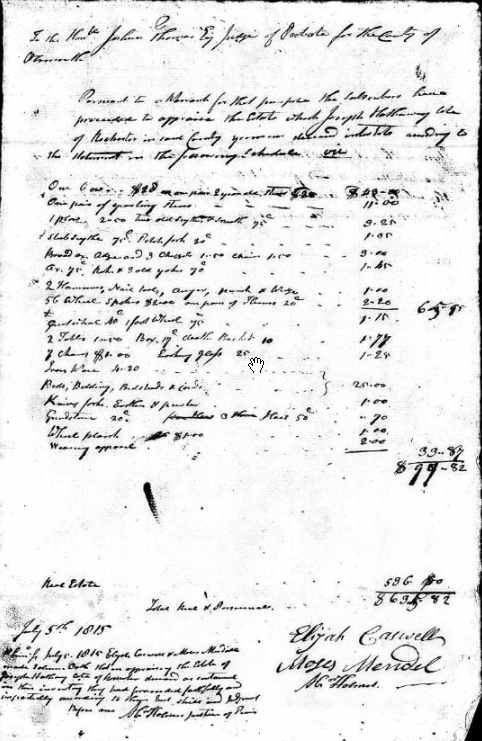 To the Honble Joshua Thomas Esq Judge of Probate for the County of
Plymouth
Pursuant to a Warrant for that purpose the subscribers have
proceeded to appraise the Estate which Joseph Hathaway late
of Rochester in said County yeoman deceased intestate
the in the following Schedule viz
One Cow $20 one pair 2 year old Steers $20 $ 40-0
One pair of yearling Steers 11-00
1 plow 2-00 two old Scythe & Snath 75c 3-25
Stub Scythe 75c Pitch fork 30c 1-05
Broad ax Adze and 3 Chissels 1-50 chain 1-50 3-00
Ax 75c & 3 old yokes 70c 1-45
2 Hammers, Nail tool, Auger, & Wedge 1-00
56 Wheel Spokes $2.00 one pair of Hames 20c 2-20
40c 1 foot Wheel 75c 1-15
2 Tables 1.50 Box 17c Basket 10 1-77
7 Chairs $1.00 Looking glass 25 1-25
Iron Ware 4-20
Beds, Bedding, Bedsteads & Cords 25-00
Knives forks, Earthen & pewter 1-00
Grindstone 20c 50c -70
Wheel 1-00
Wearing apparel 2-00
33-87
$ 99-82
Real Estate 536 00
Total Real & Personal $ 635-82
July 5th 1815
Elijah Caswell
Moses Mendel
Holmes
July 5 1815 Elijah Caswell & Moses Mendel
made Oath that in appraising the Estate of
Joseph Hathaway late of Rochester deceased as contained
in this inventory they had proceeded faithfully and
impartially according to their best skill and judgment
Before me Holmes Justice of Peace